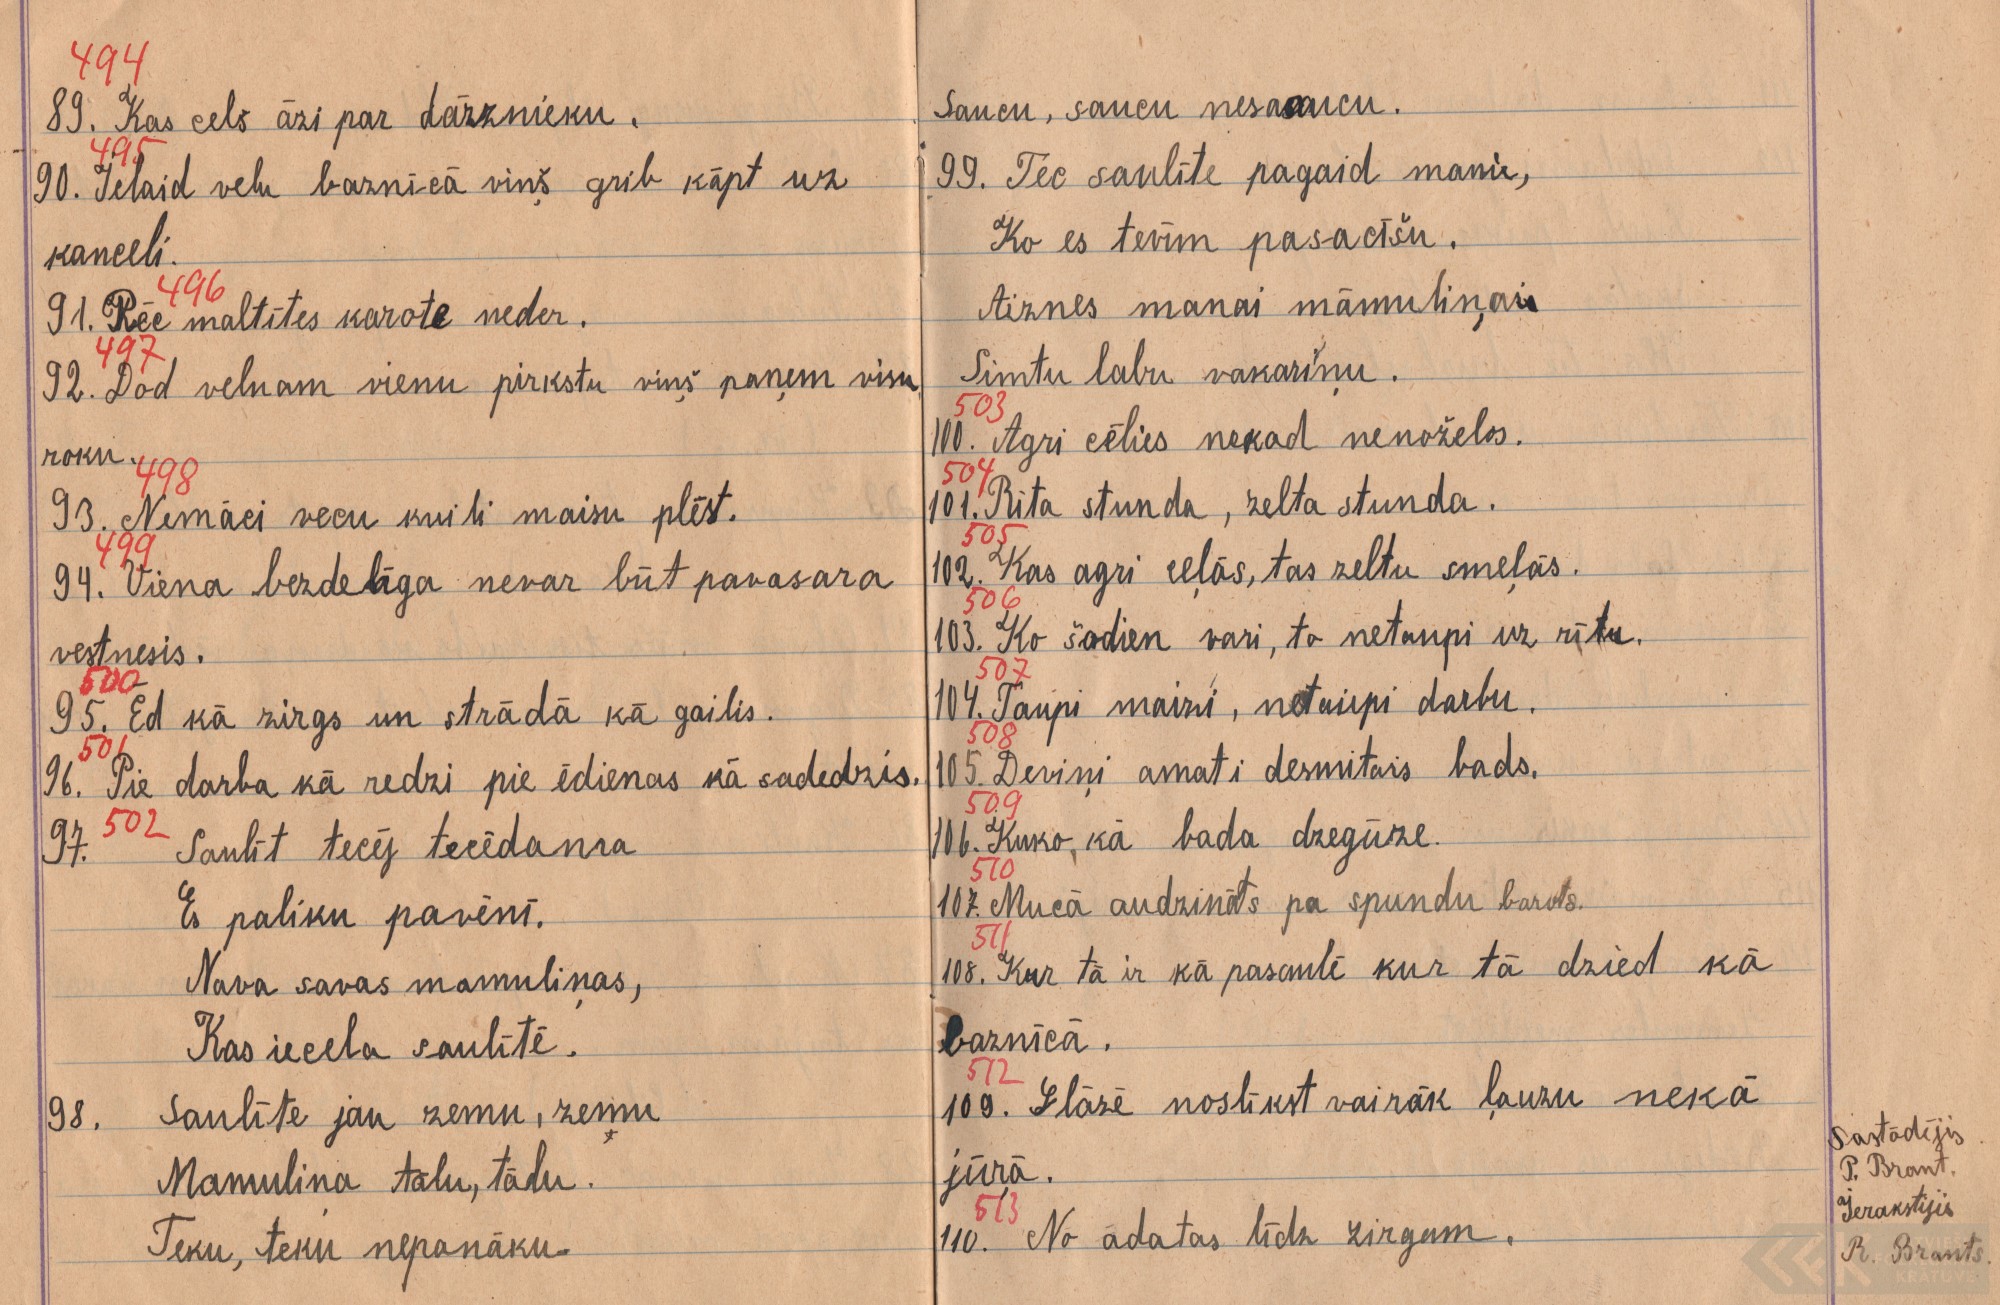 494
89. Kas cels āzi par dārznieku.
495
90. Ielaid velu baznīcā viņš grib kāpt uz
kanceli.
496
91. Pēc maltītes karote neder.
497
92. Dod velnam vienu pirkstu viņš paņem visu
roku.
498
93. Nemāci vecu kuili maisu plēst.
499
94. Viena bezdelīga nevar būt pavasara
vestnesis.
500
95. Ed kā zirgs un strādā kā gailis.
501
96. Pie darba kā redzi pie ēdienas kā sadedzis.
502
97. Saulīt tecēj tecēdama
Es paliku pavēnī.
Nava savas mamuliņas,
Kas iecela saulītē.
98. Saulīte jau zemu, zemu
Mamuliņa tālu, tādu.
Teku, teku nepanāku.
Saucu, saucu nesasaucu.
99. Tec saulīte pagaid mani,
Ko es tevīm pasacīšu.
Aiznes manai māmuliņai
Simtu labu vakariņu.
503
100. Agri cēlies nekad nenoželos.
504
101. Rīta stunda, zelta stunda.
505
102. Kas agri ceļās, tas zeltu smeļās.
506
103. Ko šodien vari, to netaupi uz rītu.
507
104. Taupi maizi, netaupi darbu.
508
105. Deviņi amati desmitais bads.
509
106. Kuko, kā bada dzegūze.
510
107. Mucā audzināts pa spundu barots.
511
108. Kur tā ir kā pasaulē kur tā dzied kā
baznīcā.
512
109. Glāzē noslīkst vairāk ļauzu nekā
jūrā.
513
110. No adatas līdz zirgam.
Sastādījis
P. Brant.
Ierakstījis
R. Brants.